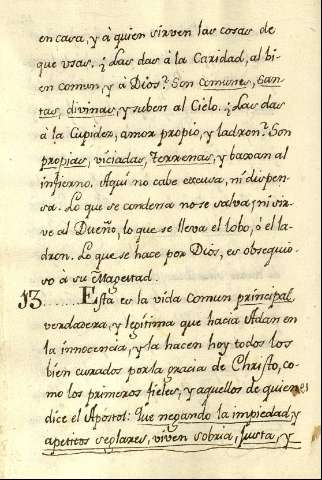 en casa, y à quien sirven las cosas de
que usas. ¿Las das à la Caridad, al bi-
en comun, y à Dios? Son comunes, San-
tas, divinas, y suben al Cielo. ¿Las das
à la Cupidez, amor propio, y ladron? Son
propias, viciadas, terrenas, y baxan al
infierno. Aqui no cabe excusa, ni dispen-
sa. Lo que se condena no se salva; ni sir-
ve al Dueño, lo que se lleva el lobo, ó el la-
dron. Lo que se hace por Dios, es obsequio-
so à su Magestad.
13.......Esta es la vida comun principal,
verdadera, y legitima que hacia Adan en
la innocencia, y la hacen hoy todos los
bien curados por la gracia de Christo, co-
mo los primeros fieles, y aquellos de quienes
dice el Apostol: Que negando la impiedad, y
apetitos seglares, viven sobria, justa, y